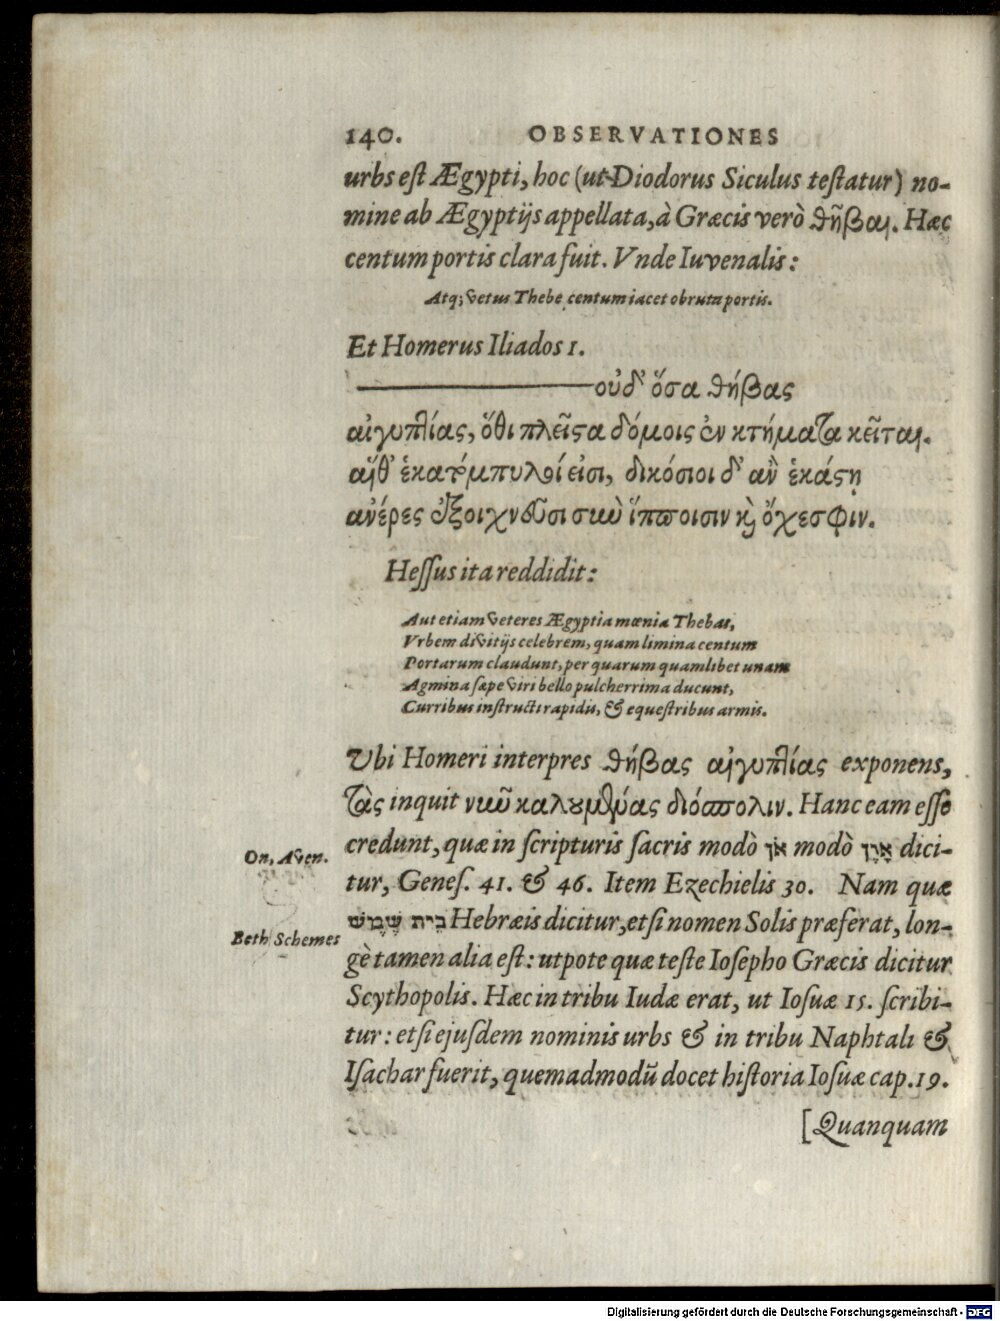 140. OBSERVATIONES
urbs est Ægypti, hoc (ut Diodorus Siculus testatur) no-
mine ab Ægyptijs appellata, à Græcis verò θῆβαι. Hæc
centum portis clara fuit. Vnde Iuvenalis:
Atq; vetus Thebe centum iacet obruta portis.
Et Homerus Iliados 1.
οὐδ' ὅσα θήβας
αἰγυπτίας, ὅθι πλεῖστα δόμοις ἐν κτήματα κεῖται.
αἵθ' ἑκατόμπυλοί εἰσι, διηκόσιοι δ' ἂν ἑκάστη
ἀνέρες ἐξοιχνεῦσι σὺν ἵπποισιν καὶ ὄχεσφιν.
Hessus ita reddidit:
Aut etiam veteres Ægyptia mœnia Thebas,
Vrbem divitijs celebrem, quam limina centum
Portarum claudunt, per quarum quamlibet unam
Agmina sæpe viri bello pulcherrima ducunt,
Curribus instructi rapidis, & equestribus armis.
Ubi Homeri interpres θήβας αἰγυπτίας exponens,
τὰς inquit νῦν καλουμένας διόσπολιν. Hanc eam esse
On, Aven.
credunt, quæ in scripturis sacris modò אֹן modò אָוֶן dici-
tur, Genes. 41. & 46. Item Ezechielis 30. Nam quæ
Beth Schemes
בֵּית שֶׁמֶשׁ Hebræis dicitur, etsi nomen Solis præferat, lon-
gè tamen alia est: utpote quæ teste Iosepho Græcis dicitur
Scythopolis. Hæc in tribu Iudæ erat, ut Iosuæ 15. scribi-
tur: etsi ejusdem nominis urbs & in tribu Naphtali &
Isachar fuerit, quemadmodū docet historia Iosuæ cap. 19.
[Quanquam
Digitalisierung gefördert durch die Deutsche Forschungsgemeinschaft - DFG